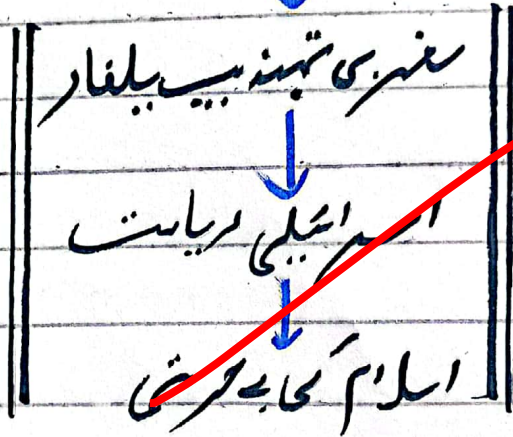 مغربی تہذیب یلغار
اسرائیلی ریاست
اسلام کی بے حرمتی